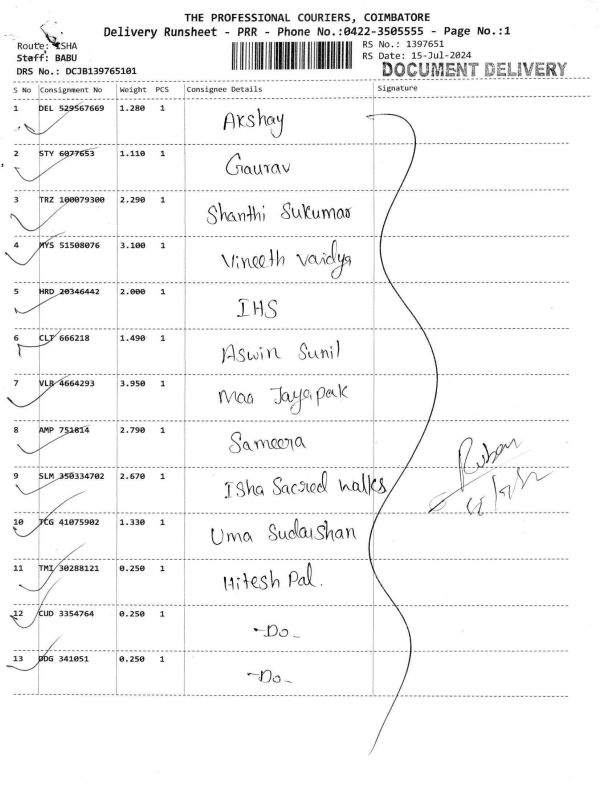 THE PROFESSIONAL COURIERS, COIMBATORE
Delivery Runsheet - PRR - Phone No.:0422-3505555 - Page No.:1
Route: ISHA
RS No.: 1397651
Staff: BABU
RS Date: 15-Jul-2024
DRS No.: DCJB139765101
DOCUMENT DELIVERY
S No Consignment No Weight PCS Consignee Details Signature
1 DEL 529567669 1.280 1 Akshay
2 STY 6077653 1.110 1 Gaurav
3 TRZ 100079300 2.290 1 Shanthi Sukumar
4 MYS 51508076 3.100 1 Vineeth Vaidya
5 HRD 20346442 2.000 1 IHS
6 CLT 666218 1.490 1 Aswin Sunil
7 VLR 4664293 3.950 1 Maa Jayapak
8 AMP 751814 2.790 1 Sameera
9 SLM 350334702 2.670 1 Isha Sacred walks
10 TCG 41075902 1.330 1 Uma Sudarshan
11 TMI 30288121 0.250 1 Hitesh Pal.
12 CUD 3354764 0.250 1 -Do-
13 DDG 341051 0.250 1 -Do-